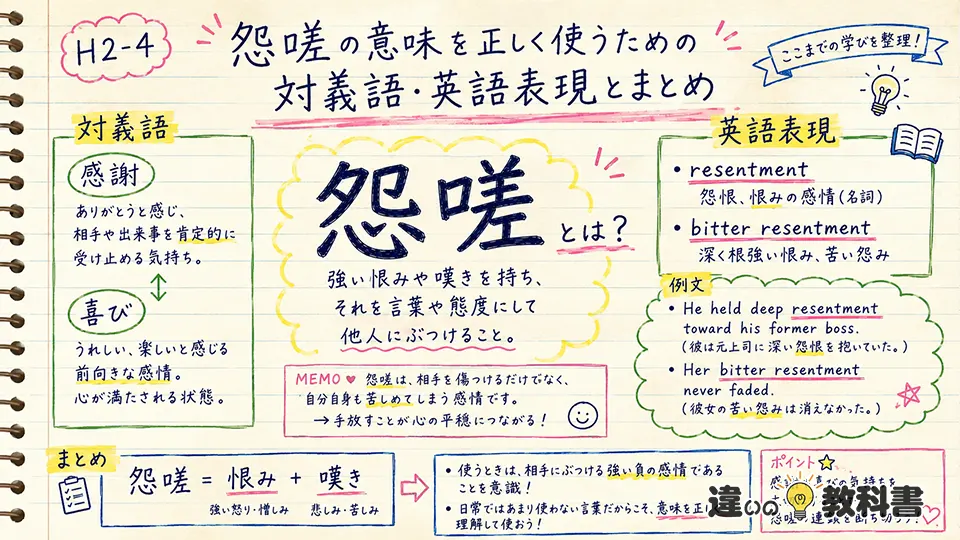 H2-4
怨嗟の意味を正しく使うための
対義語・英語表現とまとめ
ここまでの学びを整理!
対義語
感謝
ありがとうと感じ、
相手や出来事を肯定的に
受け止める気持ち。
喜び
うれしい、楽しいと感じる
前向きな感情。
心が満たされる状態。
怨嗟
とは?
強い恨みや嘆きを持ち、
それを言葉や態度にして
他人にぶつけること。
MEMO ♥ 怨嗟は、相手を傷つけるだけでなく、
自分自身も苦しめてしまう感情です。
→ 手放すことが心の平穏につながる!
英語表現
• resentment
怨恨、恨みの感情(名詞)
• bitter resentment
深く根強い恨み、苦い怨み
例文
• He held deep resentment
toward his former boss.
(彼は元上司に深い怨恨を抱いていた。)
• Her bitter resentment
never faded.
(彼女の苦い怨みは消えなかった。)
まとめ
怨嗟 = 恨み + 嘆き
強い怒り・憎しみ 悲しみ・苦しみ
• 使うときは、相手にぶつける強い負の感情である
ことを意識!
• 日常ではあまり使わない言葉だからこそ、意味を正し
理解して使おう!
ポイント
違いの教科書